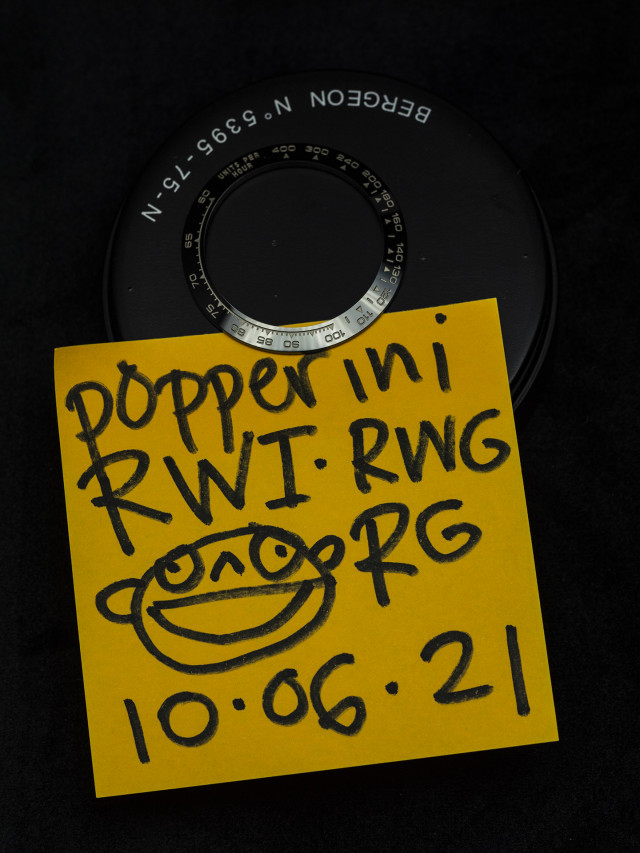 BERGEON N° 5395-75-N
UNITS PER
HOUR
400 300 240 200 180 160 140 130 120 110 100 90 85 80 75 70 65 60
popperini
RWI · RWG
RG
10·06·21